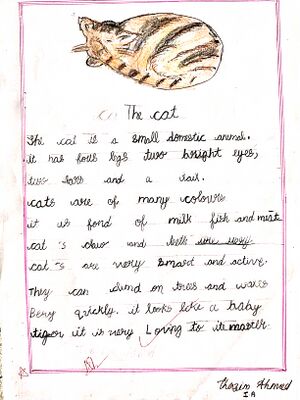 The cat
The cat is a small domestic animal.
it has four legs two bright eyes,
two ears and a tail.
cats are of many colours
it is fond of milk fish and meat
cat 's claw and teeth are very
cat 's are very smart and active.
They can climd on trees and
Bery quickly. it looks like a baby
tiger it is very Loving to its master
Ahmed